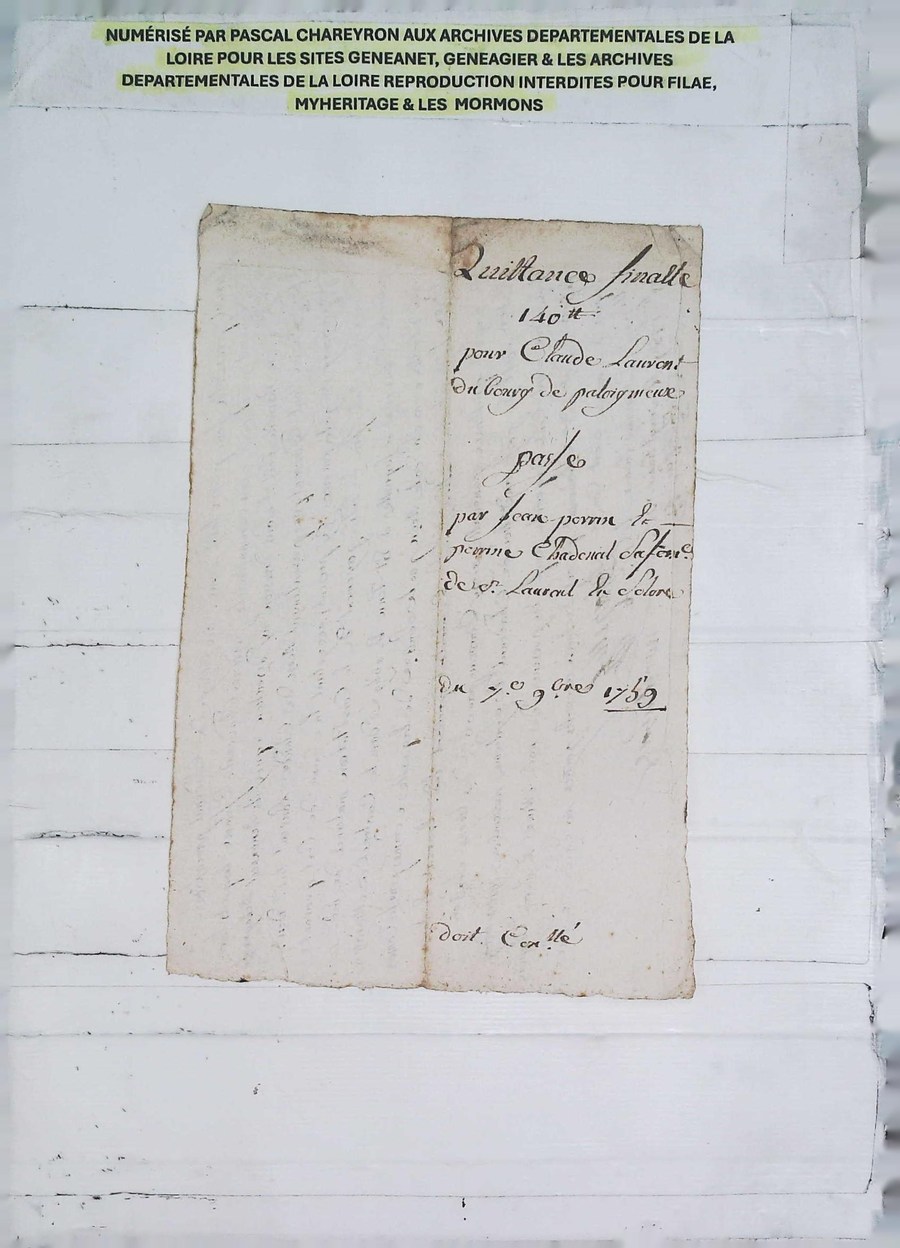 NUMÉRISÉ PAR PASCAL CHAREYRON AUX ARCHIVES DEPARTEMENTALES DE LA
LOIRE POUR LES SITES GENEANET, GENEAGIER & LES ARCHIVES
DEPARTEMENTALES DE LA LOIRE REPRODUCTION INTERDITES POUR FILAE,
MYHERITAGE & LES MORMONS
Quittance finalle
140tt
pour Claude Laurent
du bourg de paloigneux
passe
par Jean perrin &
perrine Chadenal Sa
de St Laurent En Solore
du 7e 9bre 1759
doit Conllé